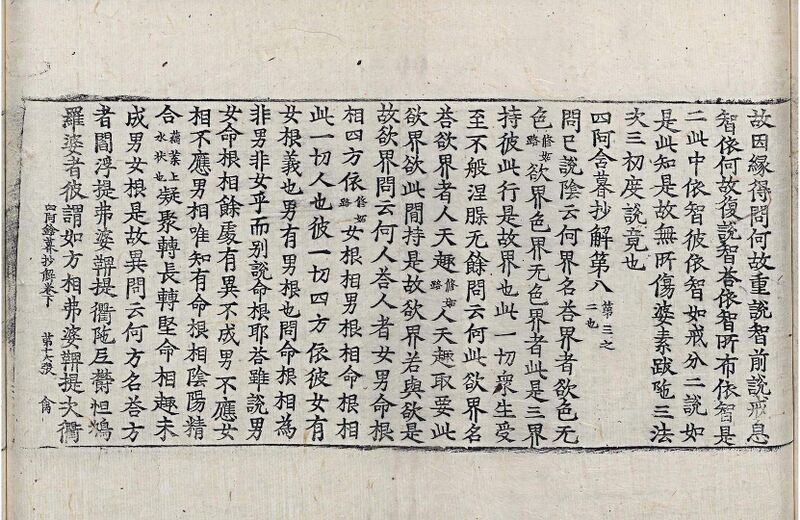 故因縁得問何故重說智前說戒息
智依何故復說智荅依智所布依智是
二此中依智彼依智如戒分二說如
是此知是故無所傷婆素跋陁三法
次三初度說竟也
四阿含暮抄解第八 第三之二也
問已說陰云何界名荅界者欲色无
色修妬路欲界色界无色界者此是三界
持彼此行是故界也此一切衆生受
至不般涅腬无餘問云何此欲界名
荅欲界者人天趣修妬路人天趣取要此
欲界欲此間持是故欲界若與欲是
故欲界問云何人荅人者女男命根
相四方依修妬路女根相男根相命根相
此一切人也彼一切四方依彼女有
女根義也男有男根也問命根相為
非男非女乎而别說命根耶荅雖說男
女命根相餘處有異不成男不應女
相不應男相唯知有命根相陰陽精
合藕葉上水状也凝聚轉長轉堅命相趣未
成男女根是故異問云何方名荅方
者閻浮提弗婆鞞提衢陁屋欝怛鴆
羅婆者彼謂如方相弗婆鞞提次衢
四阿鋡暮抄解卷下 第十六張 禽